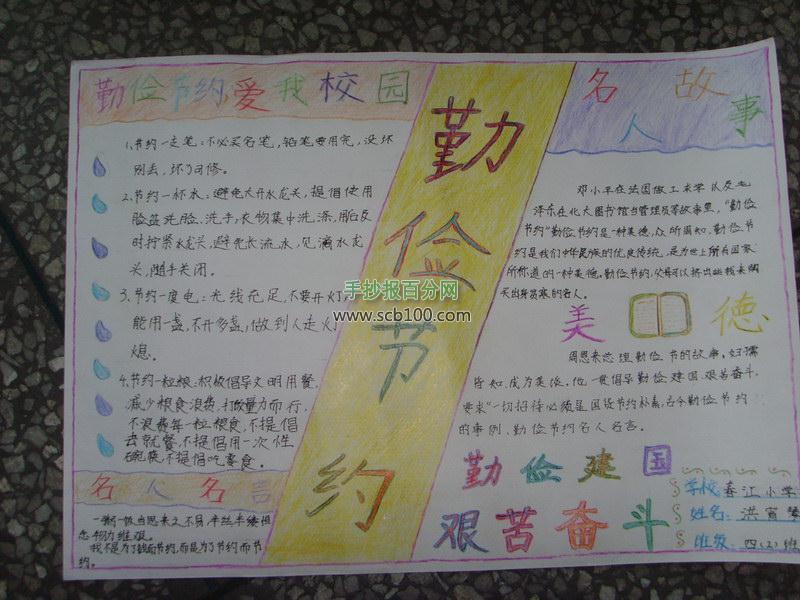 勤俭节约,爱我校园
1.节约一支笔:不必买名笔,铅笔要用完,没坏
别丢,坏了可修。
2.节约一杯水:避免大开水龙头,提倡使用
脸盆洗脸、洗手,衣物集中洗涤,用后及
时拧紧水龙头,避免长流水,见滴水龙
头,随手关闭。
3.节约一度电:光线充足,不要开灯,
能用一盏,不开多盏,做到人走火
熄。
4.节约一粒粮:积极倡导文明用餐,
减少粮食浪费,打饭量力而行,
不浪费每一粒粮食,不提倡
去就餐,不提倡用一次性
碗筷,不提倡吃零食。
名人名言
一粥一饭当思来之不易,半丝半缕恒
念物力维艰。
我不是为了钱而节约,而是为了节约而节
约。
勤
俭
节
约
手抄报百分网
www.scb100.com
名人故事
邓小平在法国做工求学以及毛
泽东在北大图书馆当管理员等故事里,“勤俭
节约”勤俭节约是一种美德,众所周知,勤俭节
约是我们中华民族的优良传统,是为世上所有国家
所称道的一种美德。勤俭节约,
天出身贫寒的名人。
美德
周恩来总理勤俭节的故事,妇孺
皆知,成为美谈。他一贯倡导勤俭建国,艰苦奋斗,
要求“一切招待必须是国货,节约朴素,古今勤俭节约
的事例、勤俭节约名人名言。
勤俭建国
艰苦奋斗
学校:春江小学
姓名:洪宵
班级:四(2)班